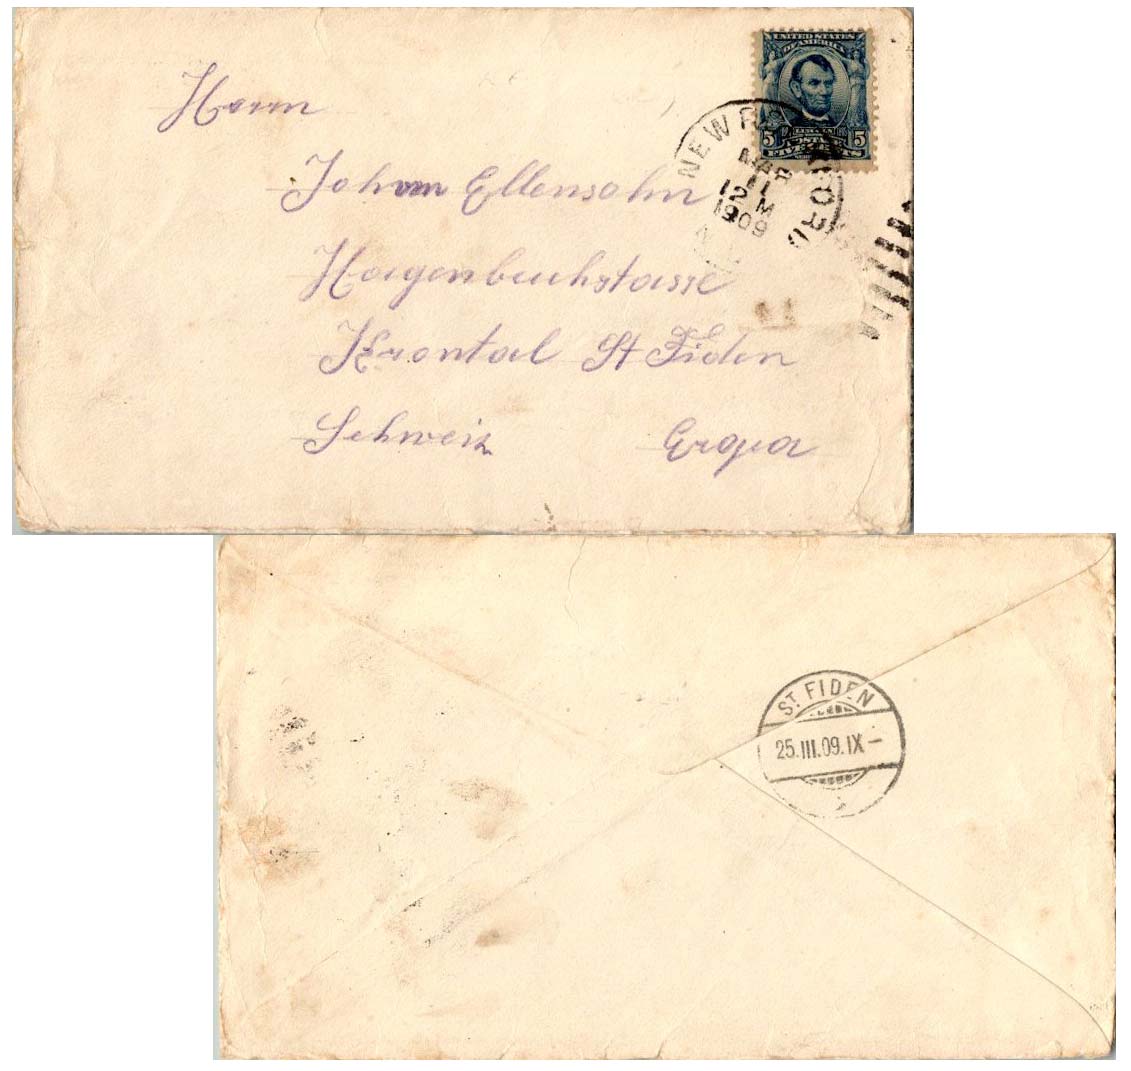 UNITED STATES
OF AMERICA
5 LINCOLN 5
POSTAGE
FIVE CENTS
NEW
MAR
11
12 M
1909
Herrn
Johann Ellensohn
Hagenbuchstasse
Krontal St Fiden
Schweiz Eropa
ST. FIDEN
25.III.09.IX—